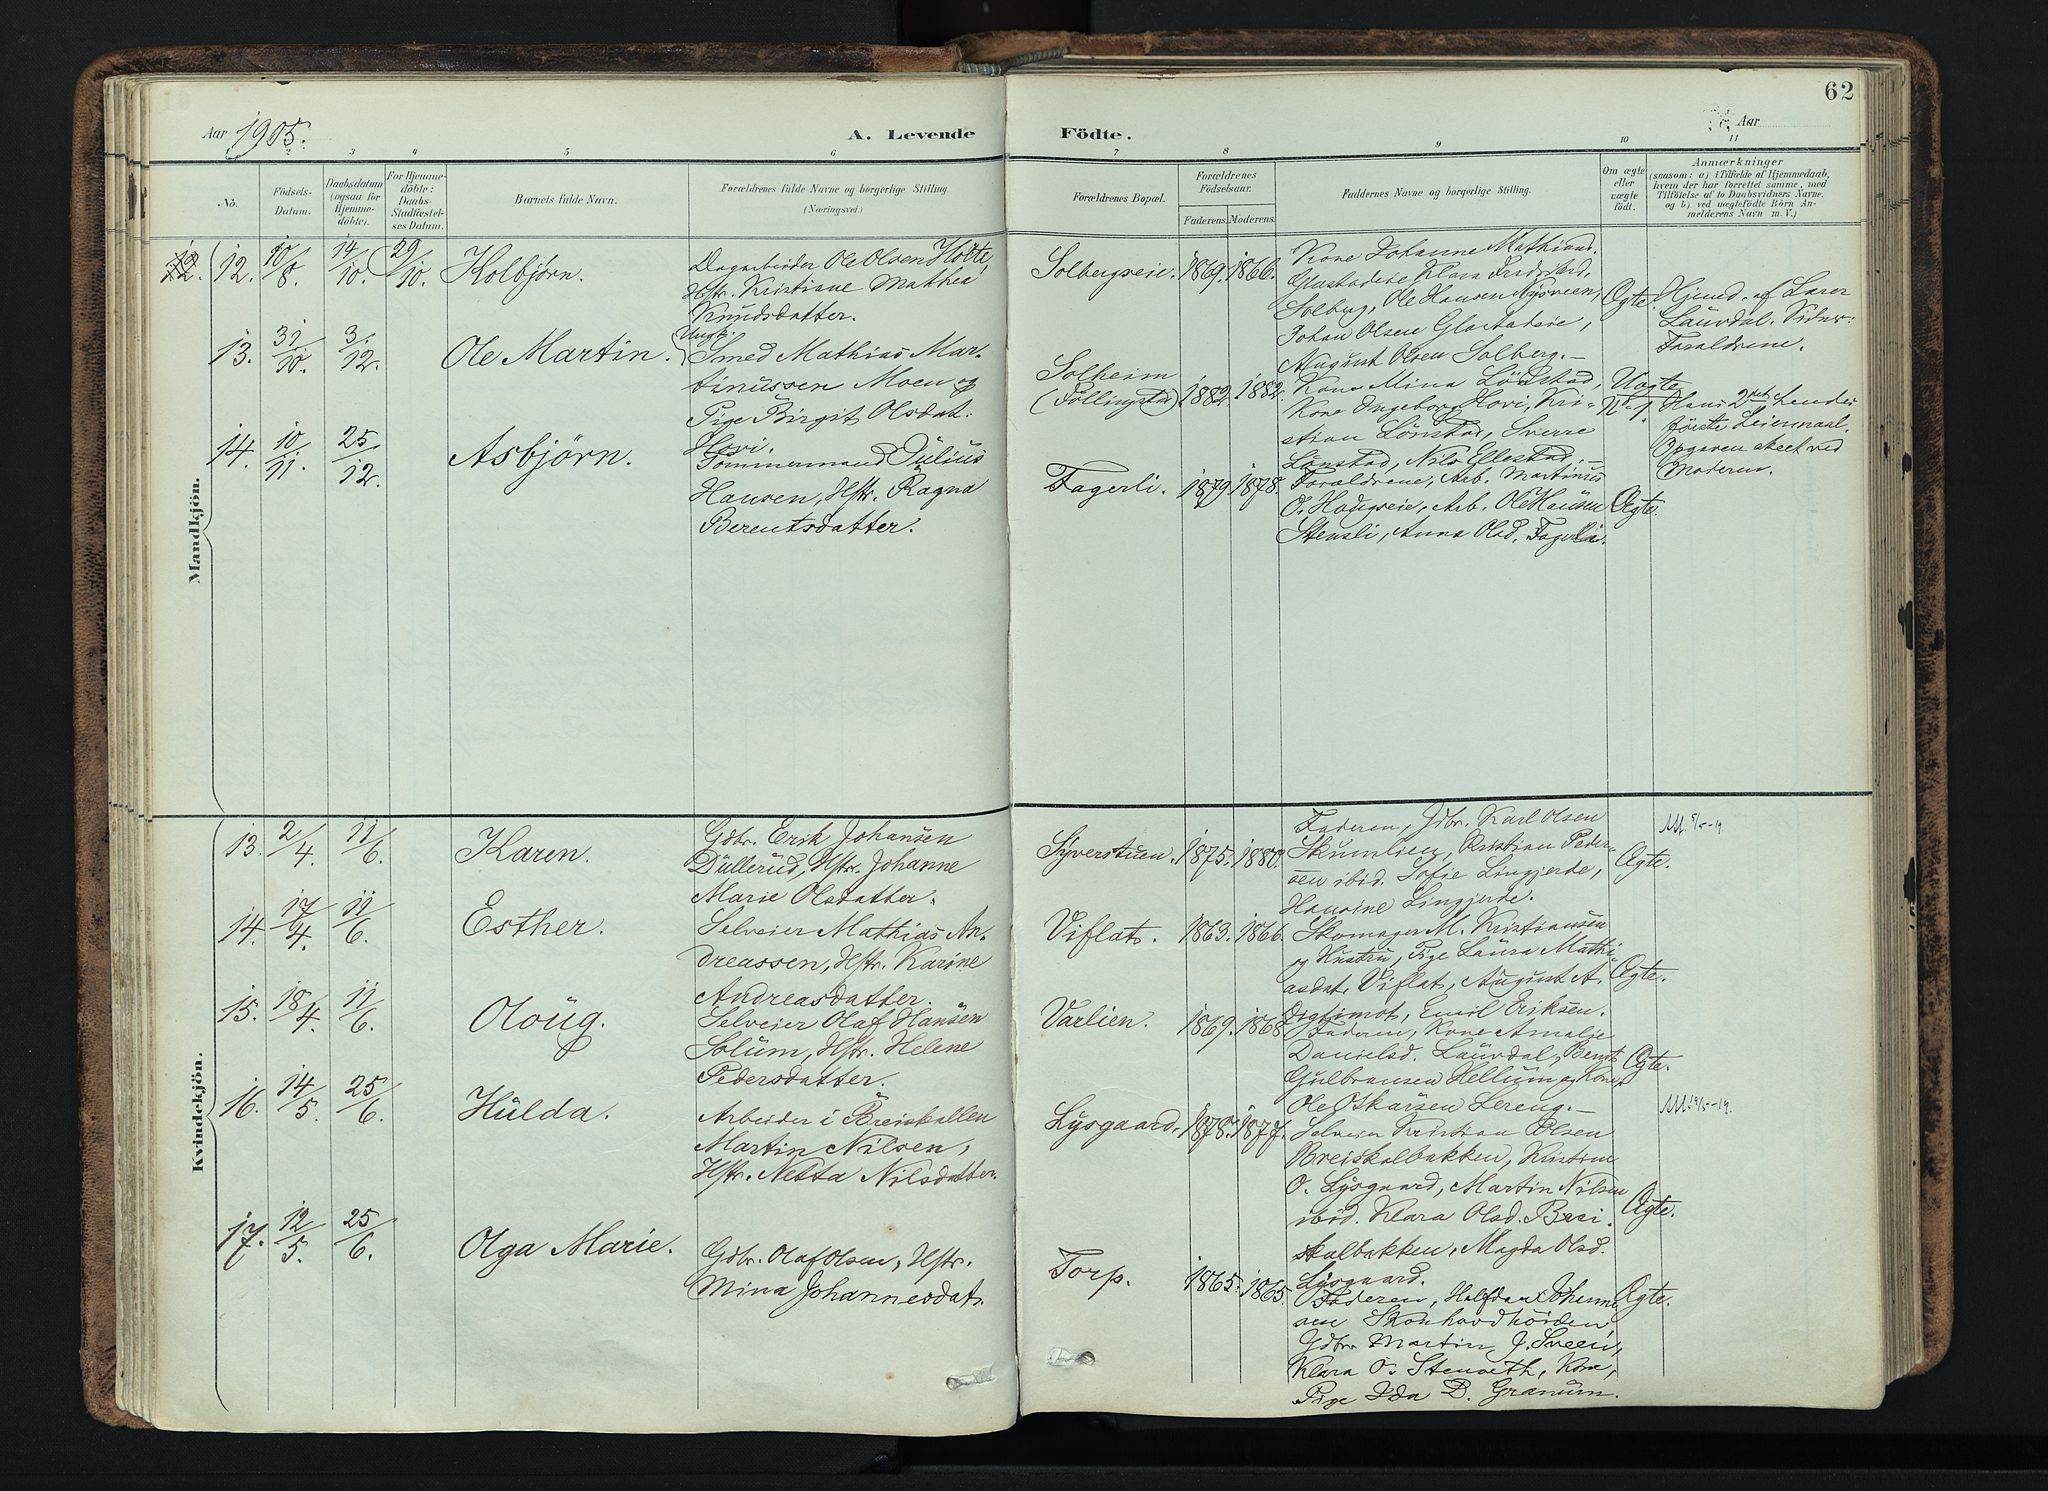 62
Aar 1905.
A. Levende Födte.
Aar
1 2 3 4 5 6 7 8 9 10 11
No.
Födsels-Datum.
Daabsdatum (ogsaa for Hjemme-döbte).
For Hjemme-döbte: Daabs-Stadfæstel-ses Datum.
Barnets fulde Navn.
Forældrenes fulde Navne og borgerlige Stilling.
(Næringsvei.)
Forældrenes Bopæl.
Forældrenes Födselsaar.
Faderens. Moderens.
Faddernes Navne og borgerlige Stilling.
Om ægte eller uægte födt.
Anmærkninger
(saasom: a) i Tilfælde af Hjemmedaab,
hvem der har forrettet samme, med
Tilföielse af to Daabsvidners Navne,
og b) ved uægtefödte Börn An-
melderens Navn m. V.)
Mandkjön.
12. 10/8. 14/10. 29/10. Kolbjörn.
Dagarbeider Ole Olsen Holte,
Hstr. Kristiane Mathea
Knudsdatter.
Solbergseie. 1869. 1866.
Kone Johanne Mathiasd.
Glæstadeie, Klara Fredriksd.
Solberg, Ole Hansen Nysveen,
Johan Olsen Glæstadeie,
August Olsen Solberg.—
Ægte.
Hjemd. af Lærer
Laurdal. Vidner:
Forældrene.
13. 31/10. 3/12. Ole Martin.
Ungk.
Smed Mathias Mar-
tinussen Moen og
Pige Birgit Olsdat.
Hovi.
Solheim
(Föllingstad) 1882. 1882.
Kone Mina Lönstad,
Kone Ingeborg Hovi, Kri-
stian Lönstad, Sverre
Lönstad, Nils Ellestad.—
Uægte
No 1.
Hans 2det hendes
förste Leiermaal.
Opgaven skeet ved
Moderen.
14. 10/11. 25/12. Asbjörn.
Tömmermand Julius
Hansen, Hstr. Ragna
Berentsdatter.
Fagerli. 1879. 1878.
Forældrene, Arb. Martinus
O. Haugseie, Arb. Ole Hansen
Stensli, Anna Olsd. Fagerli.
Ægte.
Kvindekjön.
13. 2/4. 11/6. Karen.
Gdbr. Erik Johansen
Dullerud, Hstr. Johanne
Marie Olsdatter.
Syverstuen. 1875. 1880.
Faderen, Gdbr. Karl Olsen
Skumlien, Kristian Peder-
sen ibid. Sofie Lingjerde,
Hansine Lingjerde.
Ægte.
14. 17/4. 11/6. Esther.
Selveier Mathias An-
dreassen, Hstr. Karine
Andreasdatter.
Viflat. 1863. 1866.
Skomager M. Kristiansen
og Hustru, Pige Laura Mathi-
asdat. Viflat, August A.
Digtimot, Emil Eriksen.
Ægte.
15. 18/4. 11/6. Olöug.
Selveier Olaf Hansen
Solum, Hstr. Helene
Pedersdatter.
Varlien. 1869. 1868.
Faderen, Kone Amalie
Danielsd. Laurdal, Bernt
Gulbransen Hellum og Kone,
Ole Oskarsen Lereng.—
Ægte.
16. 14/5. 25/6. Hulda.
Arbeider i Breiskallen
Martin Nilsen,
Hstr. Netta Nilsdatter.
Lysgaard. 1878. 1877.
Selveier Kristian Olsen
Breiskalbakken, Kristine
O. Lysgaard, Martin Nilsen
ibid. Klara Olsd. Brei-
skalbakken, Magda Olsd.
Lysgaard.
Ægte.
17. 12/5. 25/6. Olga Marie.
Gdbr. Olaf Olsen, Hstr.
Mina Johannesdat.
Torp. 1865. 1865.
Faderen, Halfdan Johanne-
sen
Gdbr. Martin J. Sveen,
Klara O. Kone,
Pige Ida D. Granum.
Ægte.